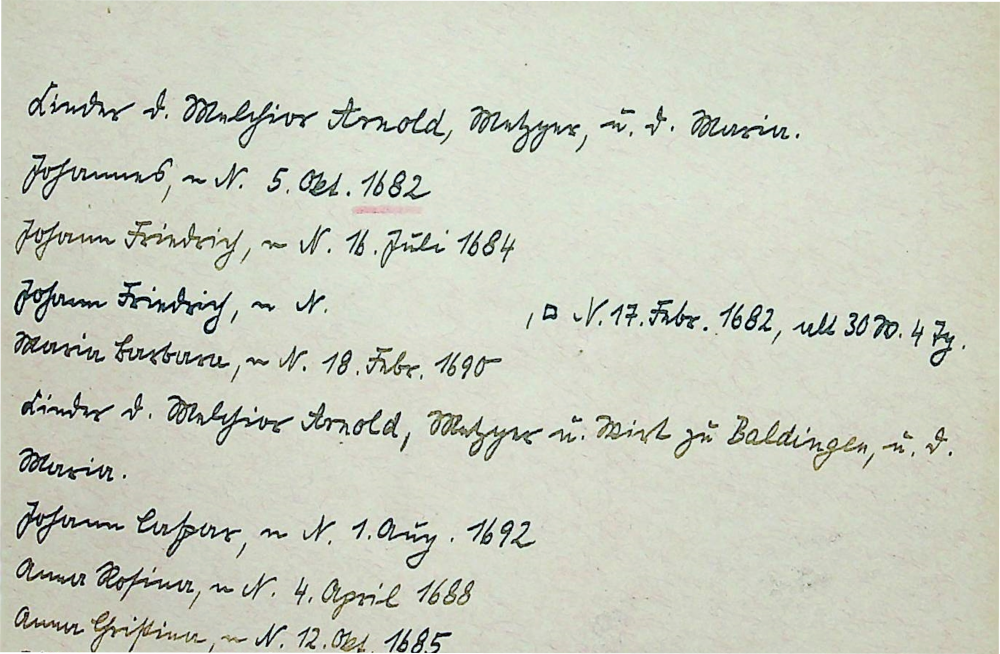 Kinder d. Melchior Arnold, Metzger, u. d. Maria.
Johannes, ~ N. 5. Okt. 1682
Johann Friedrich, ~ N. 16. Juli 1684
Johann Friedrich, ~ N. , □ N. 17. Febr. 1682, alt 30 W. 4 Tg.
Maria Barbara, ~ N. 18. Febr. 1690
Kinder d. Melchior Arnold, Metzger u. Wirt zu Baldingen, u. d.
Maria.
Johann Caspar, ~ N. 1. Aug. 1692
Anna Rosina, ~ N. 4. April 1688
Anna Christina, ~ N. 12. Okt. 1685